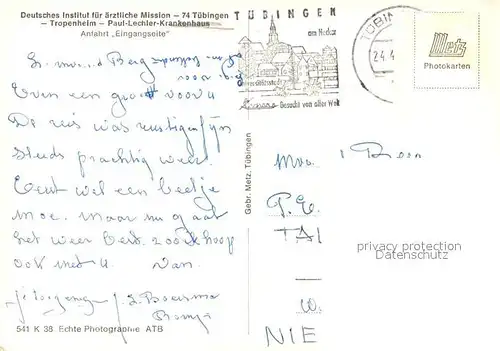 Deutsches Institut für ärztliche Mission – 74 Tübingen
– Tropenheim – Paul-Lechler-Krankenhaus
Anfahrt „Eingangseite"
TÜBINGEN
am Neckar
Besucht von aller Welt
TÜBIN
24.4
Metz
Photokarten
Even een groet voor u
De reis was rustig en fijn
Steeds prachtig weer.
Eerst wel een beetje
moe. maar nu gaat
het weer best. zoo ik hoop
ook met u. van
J. L. Boersma
Gebr. Metz, Tübingen
Mvr.
P.C.
TAI
W.
NIE
privacy protection
Datenschutz
541 K 38 Echte Photographie ATB